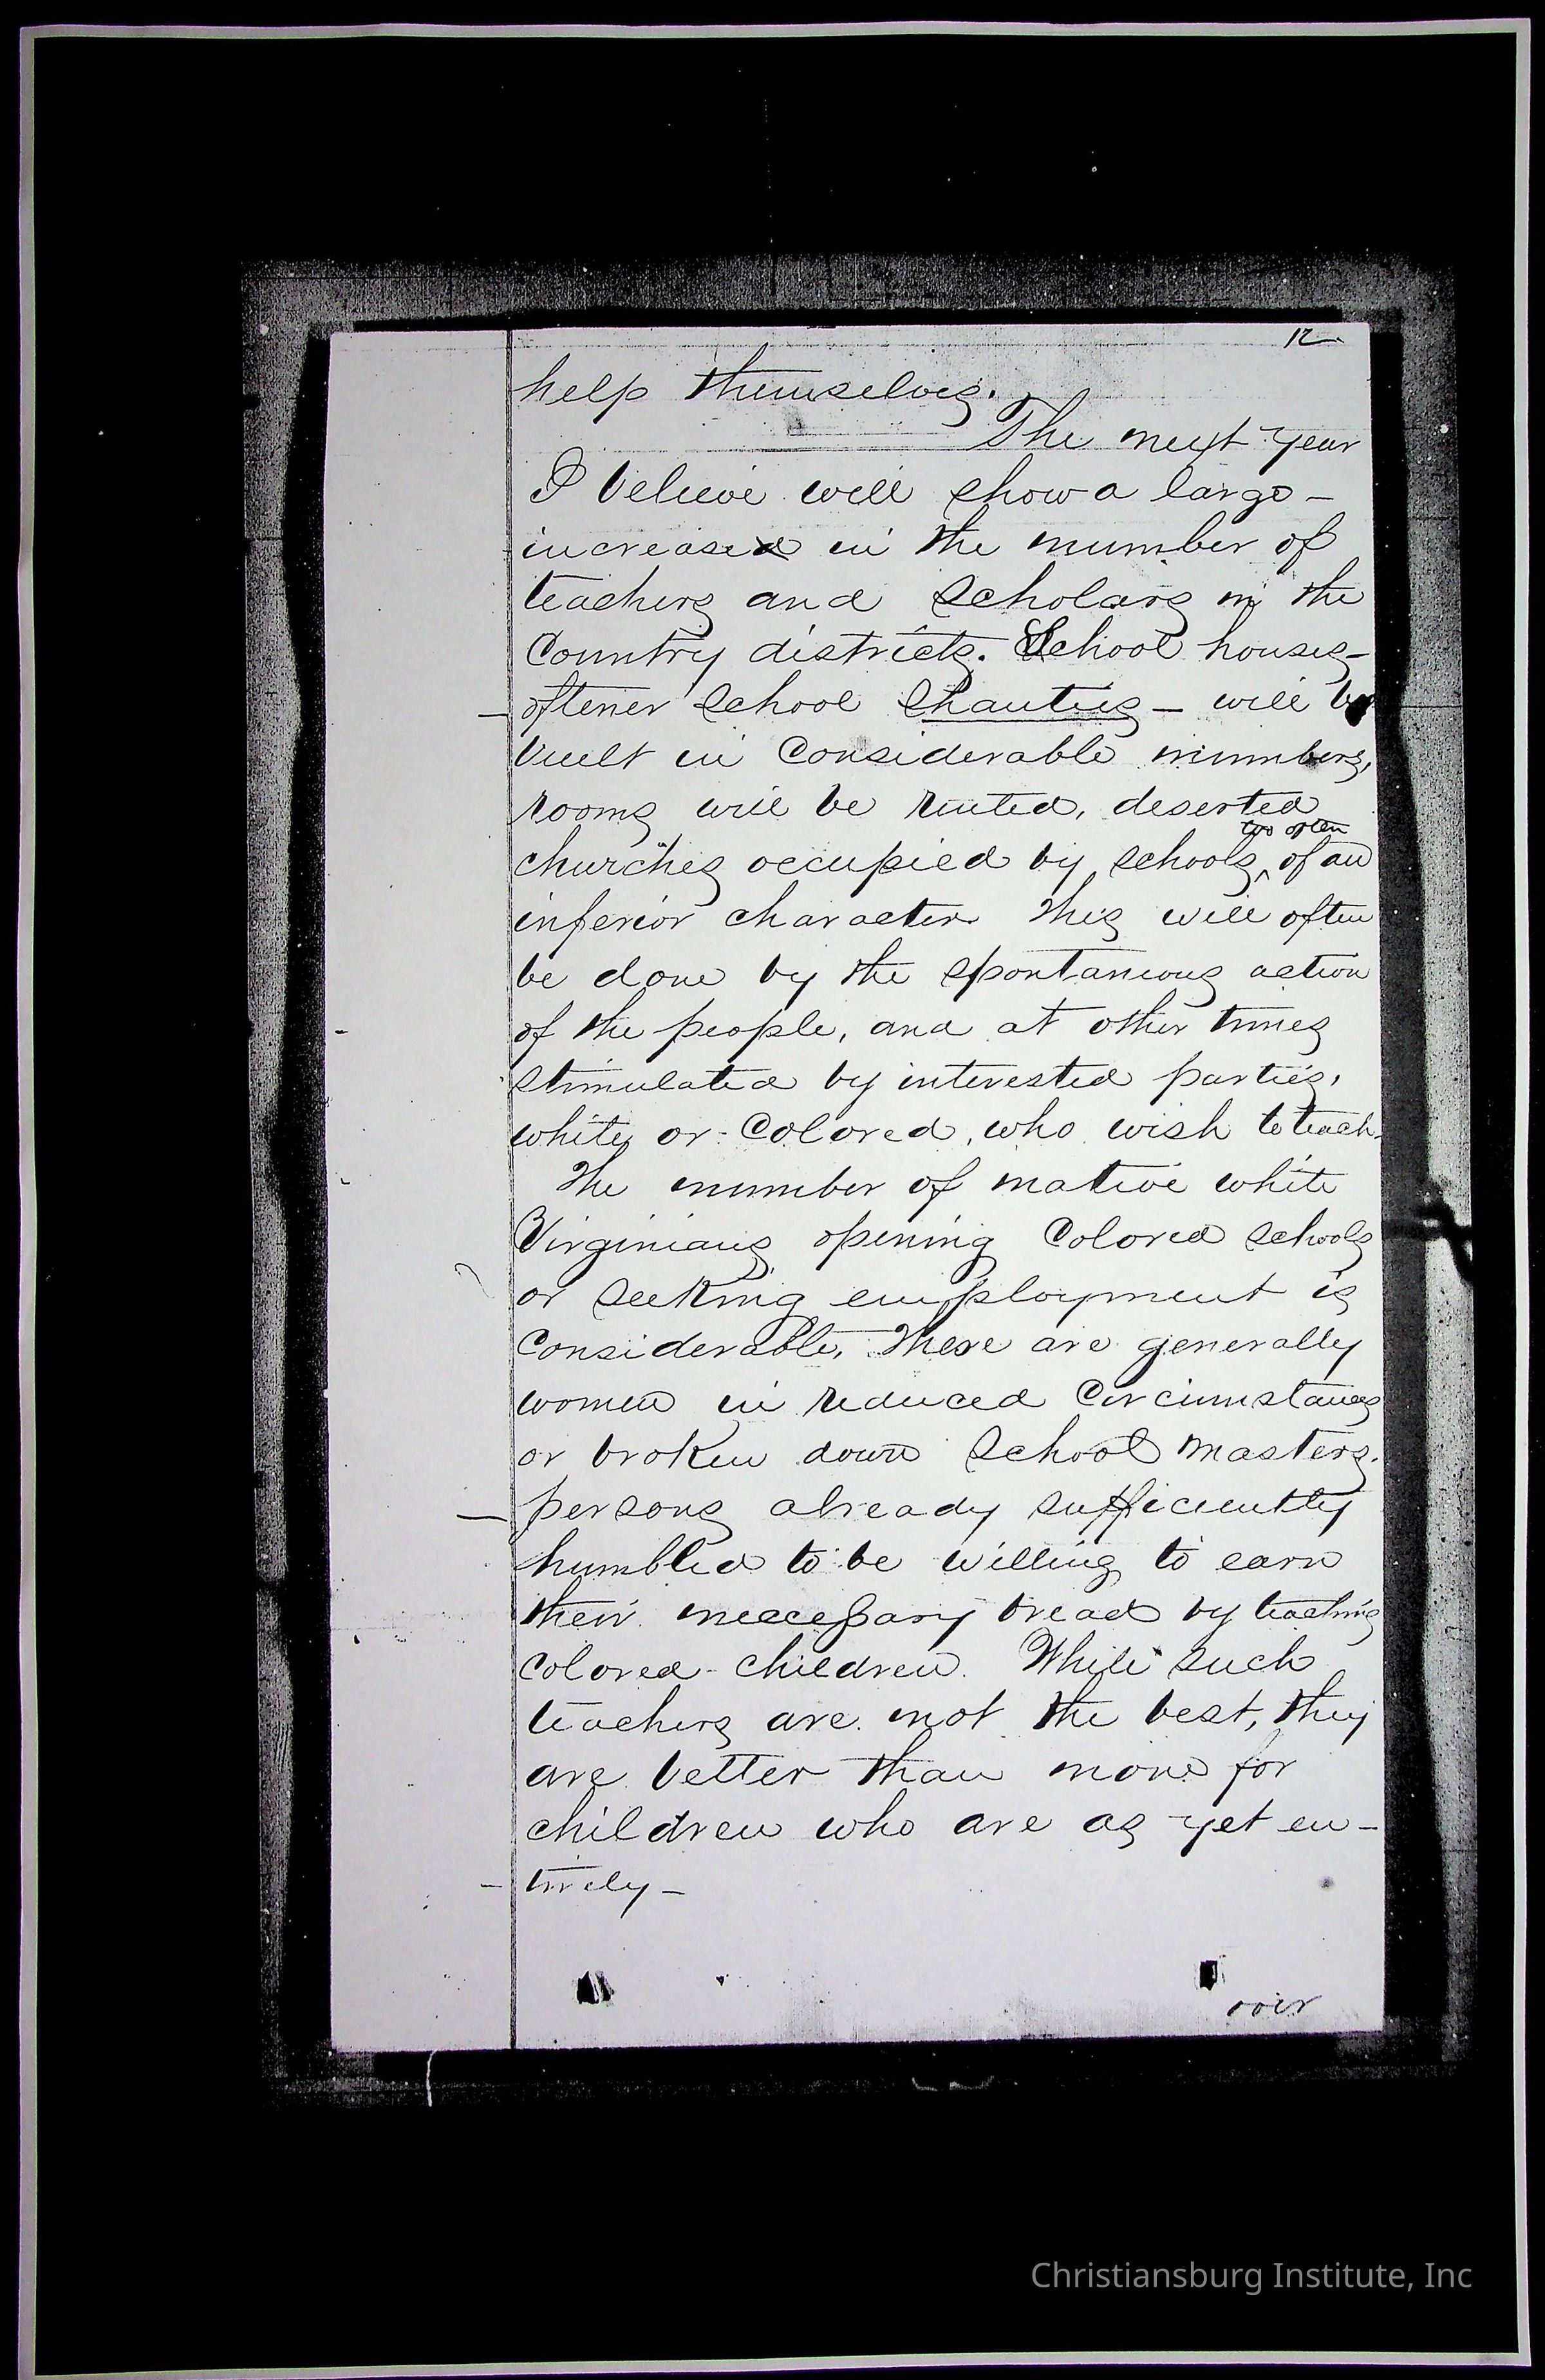 12
help themselves.
The next year
I believe will show a large
increase in the number of
teachers and scholars in the
Country districts. School houses–
oftener school shanties – will be
built in Considerable numbers,
rooms will be rented, deserted
too often
churches occupied by schools, of an
inferior character. This will often
be done by the spontaneous action
of the people, and at other times
stimulated by interested parties,
white or Colored, who wish to teach.
The number of native white
Virginians opening Colored schools
or seeking employment is
Considerable. These are generally
women in reduced Circumstances
or broken down School masters.
persons already sufficiently
humbled to be willing to earn
their neccessary bread by teaching
Colored children. While such
teachers are not the best, they
are better than none for
children who are as yet en-
tirely –
over
Christiansburg Institute, Inc